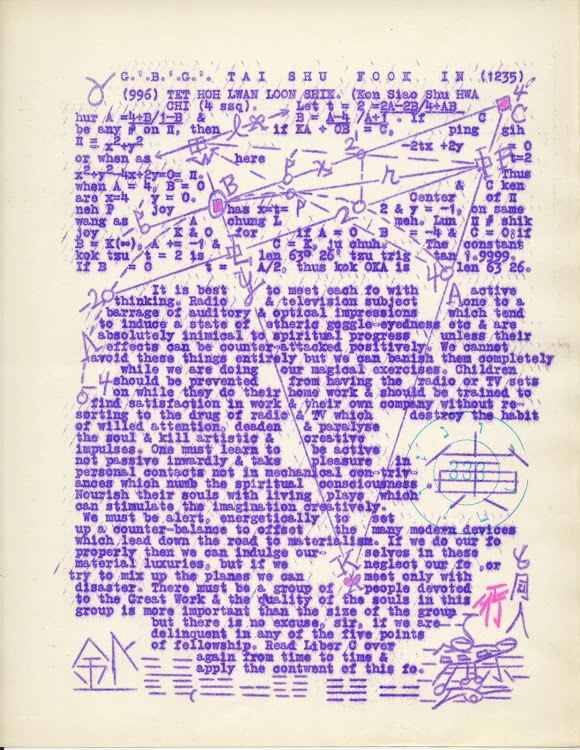 G.'.B.'.G.'. TAI SHU FOOK IN (1235)
(996) TET HOH LWAN LOON SHIK. (Kon Siao Shu HWA
CHI (4 ssq). Let t = 2 =2A-2B/4+AB
hur A =4+B/1-B & B = A-4 /A+1 . If C
be any # on Π, then if KA + OB = C. ping gih
Π = x²+y² -2tx +2y = 0
or when as here t=2
x²+y²-4x+2y=0= Π. Thus
when A = 4, B = 0 & C ken
are x=4 y = 0. Center of Π
neh P joy has x=t= 2 & y = -1, on same
wang as chung L meh. Lun N shik
joy K & O for if A = 0 B = -4 & C = 0:if
B = K(∞), A += -1 & C = K, ju chuh. The constant
kok tzu t = 2 is len 63° 26' tzu trig tan 1.9999.
If B = 0 t = A/2, thus kok OKA is len 63 26.
It is best to meet each fo with active
thinking. Radio & television subject one to a
barrage of auditory & optical impressions which tend
to induce a state of etheric goggle-eyedness etc & are
absolutely inimical to spiritual progress unless their
effects can be counter-attacked positively. We cannot
avoid these things entirely but we can banish them completely
while we are doing our magical exercises. Children
should be prevented from having the radio or TV sets
on while they do their home work & should be trained to
find satisfaction in work & their own company without re-
sorting to the drug of radio & TV which destroy the habit
of willed attention, deaden & paralyse
the soul & kill artistic & creative
impulses. One must learn to be active
not passive inwardly & take pleasure in
personal contacts not in mechanical con-triv-
ances which numb the spiritual consciousness
Nourish their souls with living plays which
can stimulate the imagination creatively.
We must be alert, energetically to set
up a counter-balance to offset the many modern devices
which lead down the road to materialism. If we do our fo
properly then we can indulge our- selves in these
material luxuries, but if we neglect our fo ,or
try to mix up the planes we can meet only with
disaster. There must be a group of people devoted
to the Great Work & the quality of the souls in this
group is more important than the size of the group
but there is no excuse, sir, if we are
delinquent in any of the five points
of fellowship. Read Liber C over
again from time to time &
apply the contwent of this fo.
333